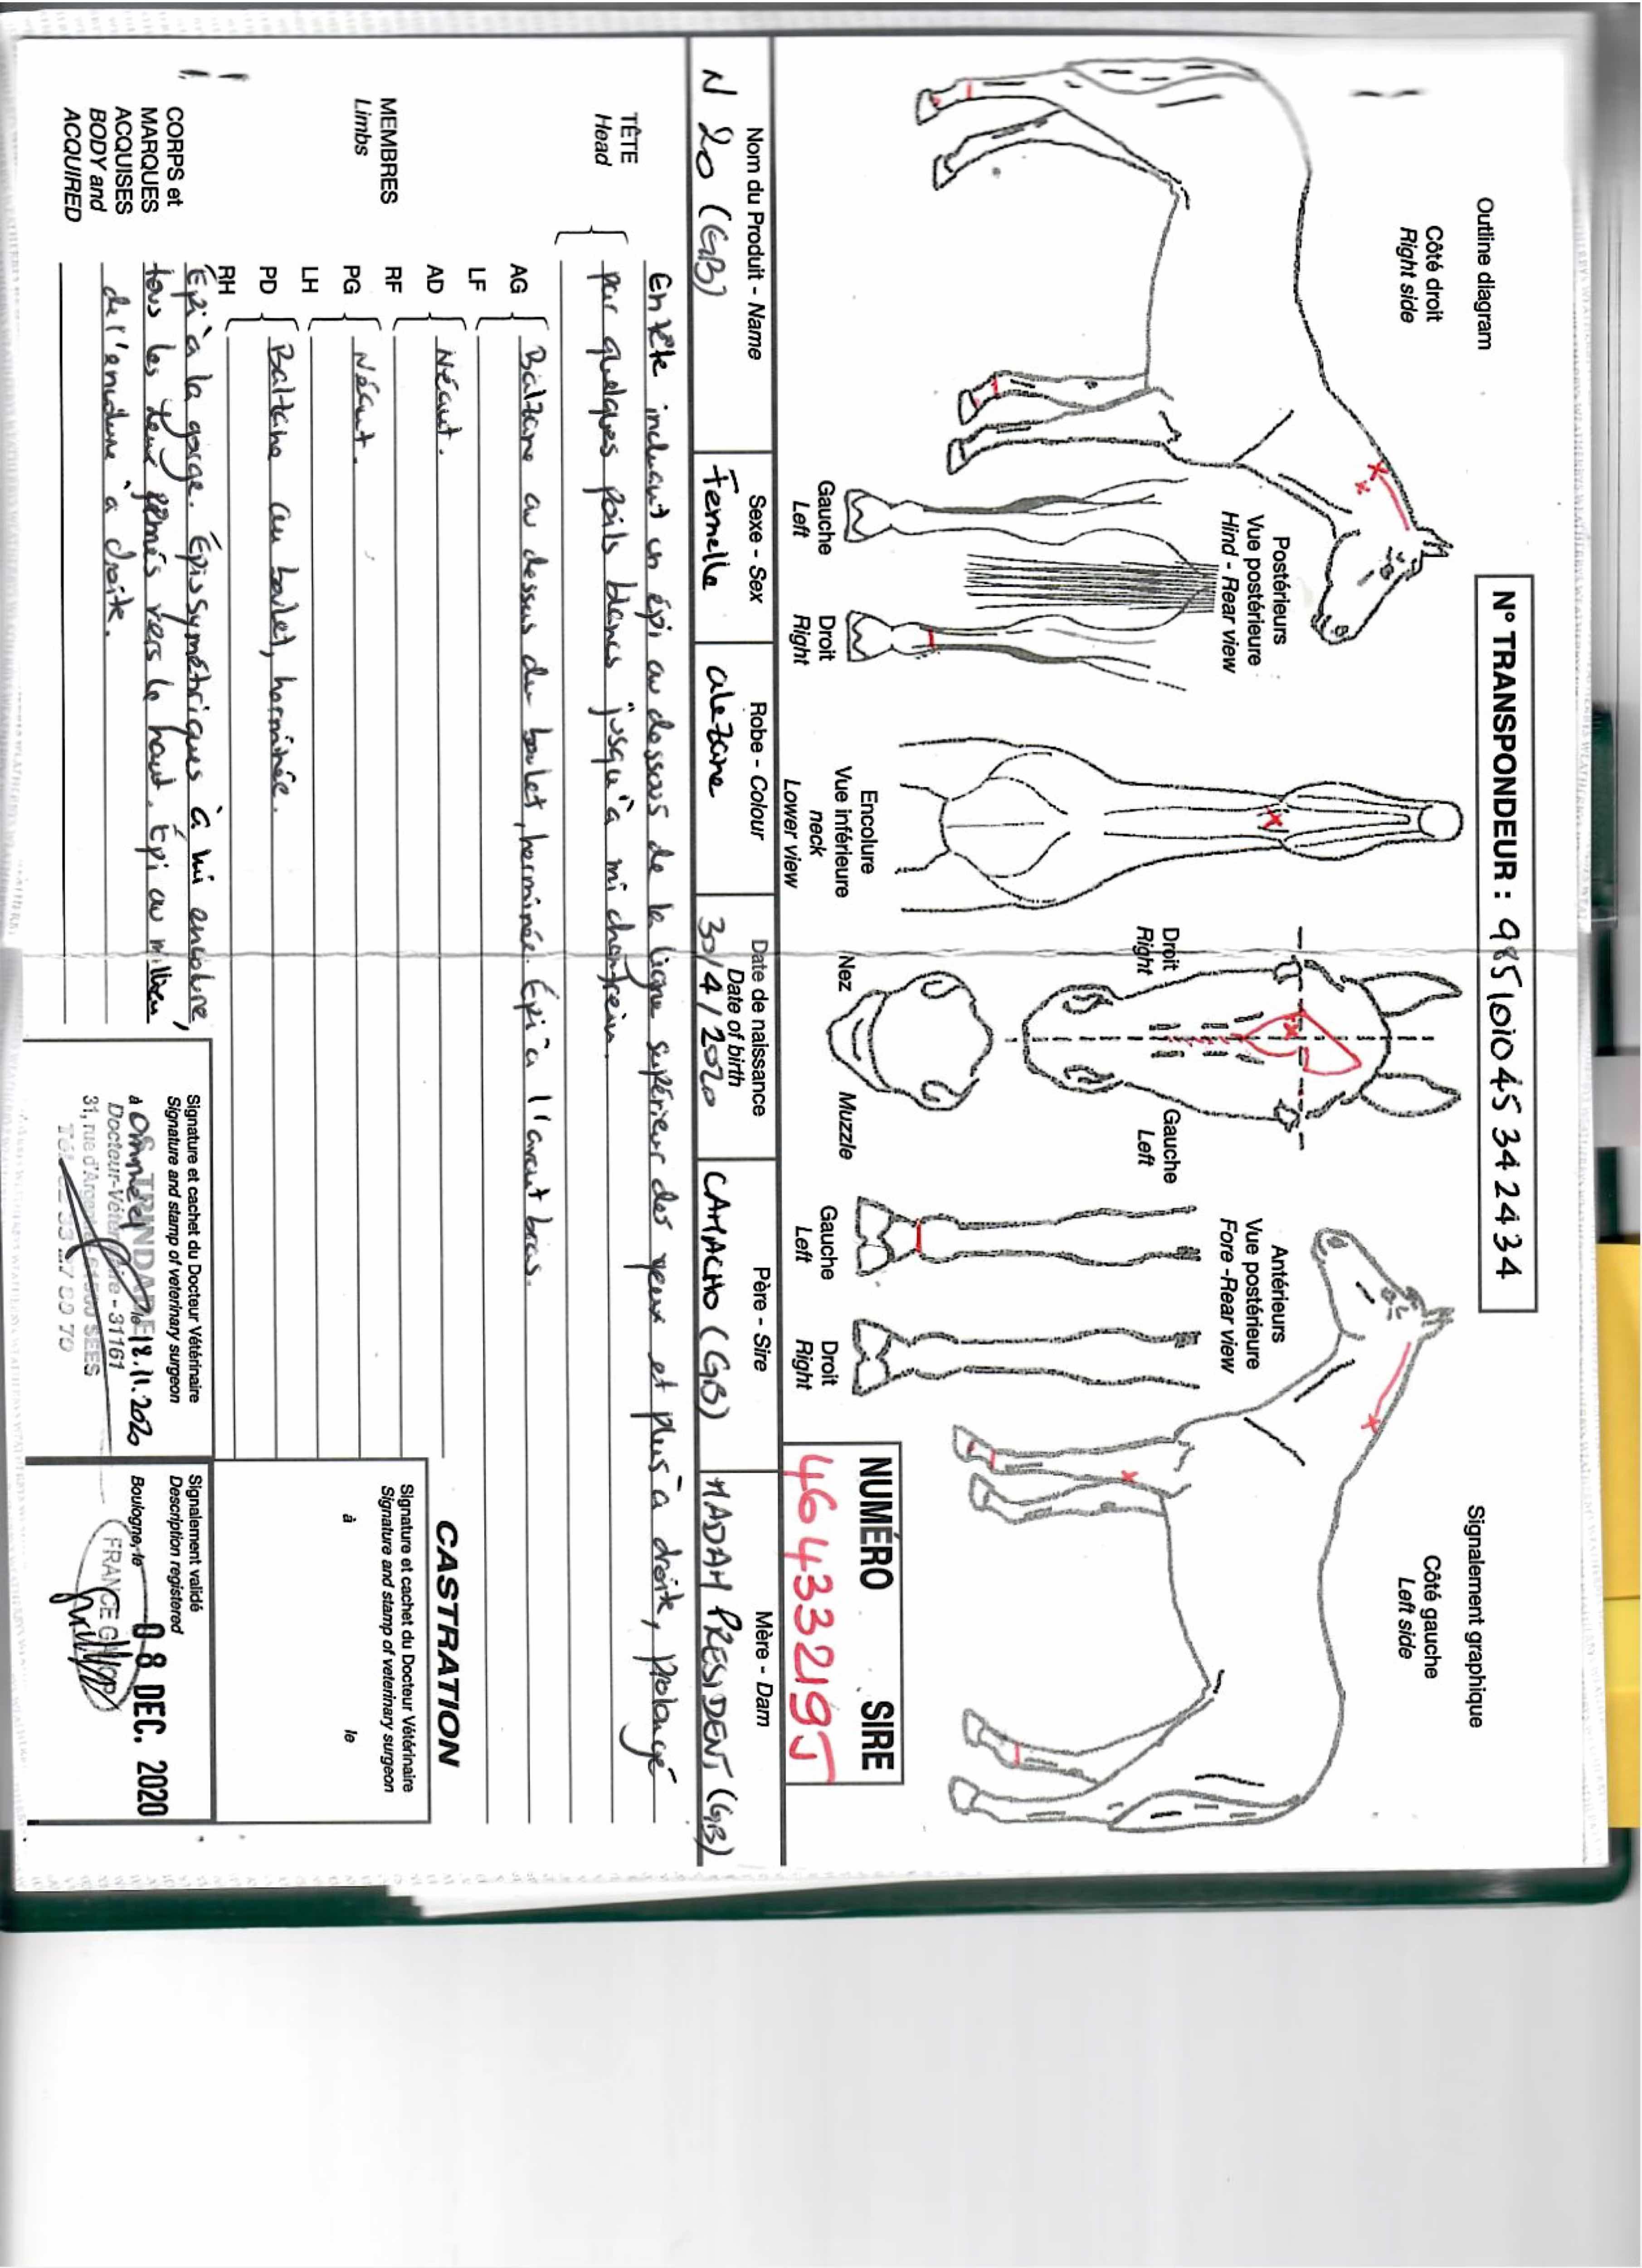 Outline diagram
N° TRANSPONDEUR : 985101045342434
Signalement graphique
Côté droit
Right side
Côté gauche
Left side
Postérieurs
Vue postérieure
Hind - Rear view
Gauche
Left
Droit
Right
Encolure
Vue inférieure
neck
Lower view
Droit
Right
Gauche
Left
Nez
Muzzle
Antérieurs
Vue postérieure
Fore -Rear view
Gauche
Left
Droit
Right
NUMÉRO SIRE
46433219J
Nom du Produit - Name
Sexe - Sex
Robe - Colour
Date de naissance
Date of birth
Père - Sire
Mère - Dam
N 20 (GB)
Femelle
alezane
30/4/2020
CAMACHO (GB)
MADAM PRESIDENT (GB)
TÊTE
Head
En tête incluant un épi au dessous de la ligne supérieur des yeux et plus à droite, prolongé
par quelques poils blancs jusqu'à mi chanfrein.
MEMBRES
Limbs
AG
LF
Balzane au dessus du boulet, herminée. Épi à l'avant bras.
AD
RF
Néant.
PG
LH
Néant.
PD
RH
Balzane au boulet, herminée.
CORPS et
MARQUES
ACQUISES
BODY and
ACQUIRED
Épi à la gorge. Épis symétriques à mi encolure,
tous les deux pennés vers le haut. Épi au milieu
de l'encolure à droite.
CASTRATION
Signature et cachet du Docteur Vétérinaire
Signature and stamp of veterinary surgeon
à le
Signature et cachet du Docteur Vétérinaire
Signature and stamp of veterinary surgeon
à le 18.11.2020
TRINDADE
Docteur-Vétérinaire - 31161
31, rue d'Argentan 61500 SEES
Signalement validé
Description registered
Boulogne, le 08 DEC. 2020
FRANCE GALOP